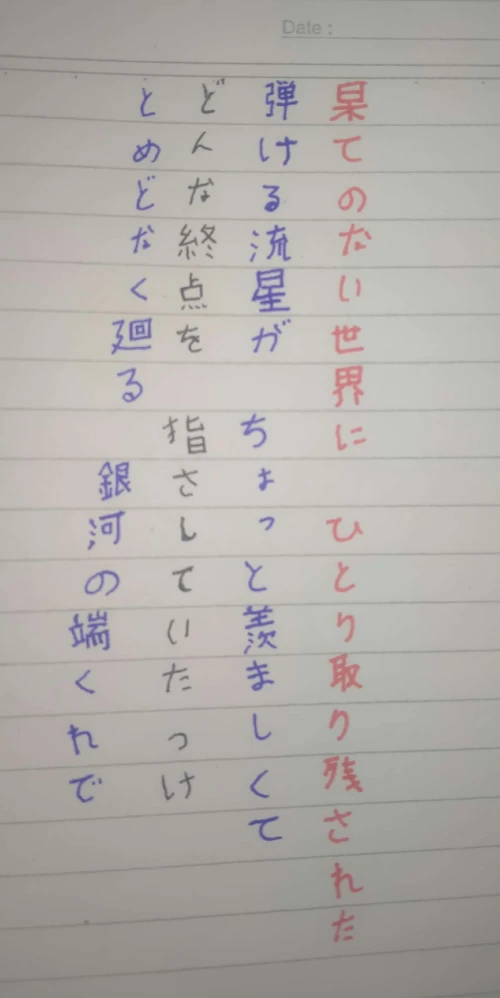 Date :
果てのない世界に ひとり取り残された
弾ける流星が ちょっと羨ましくて
どんな終点を 指さしていたっけ
とめどなく廻る 銀河の端くれで